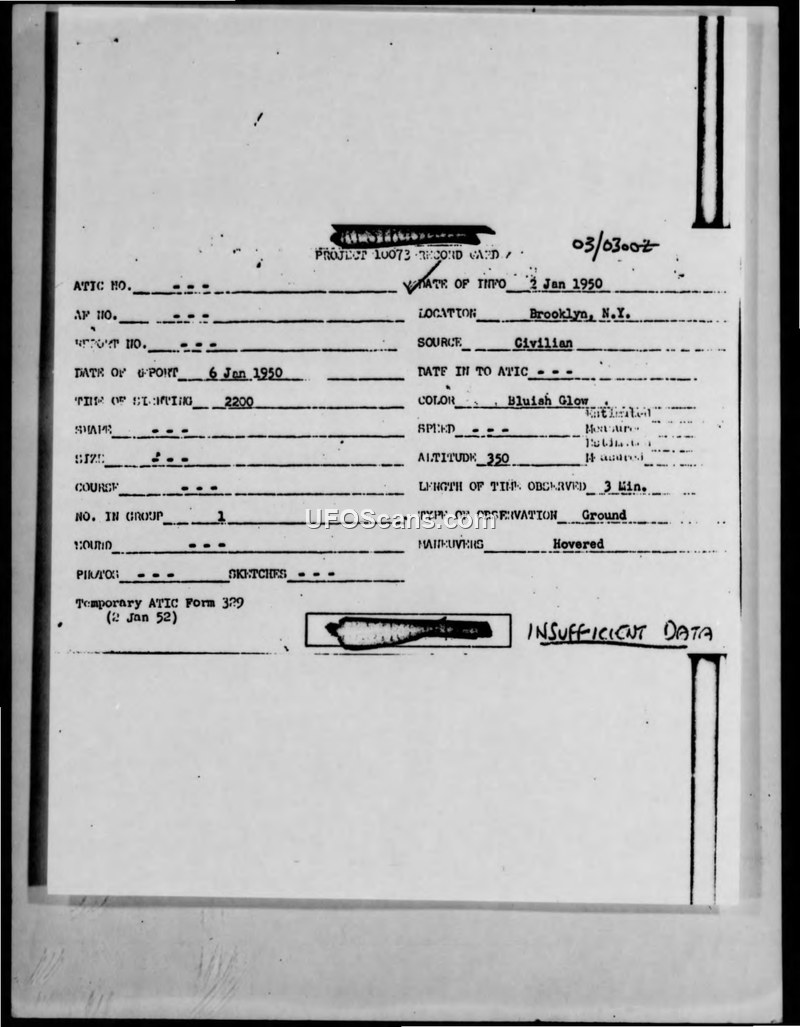 03/0300Z
PROJECT 10073 RECORD CARD
ATIC NO. - - -
DATE OF INFO 2 Jan 1950
AF NO. - - -
LOCATION Brooklyn, N.Y.
REPORT NO. - - -
SOURCE Civilian
DATE OF REPORT 6 Jan 1950
DATE IN TO ATIC - - -
TIME OF SIGHTING 2200
COLOR Bluish Glow
SHAPE - - -
SPEED - - -
SIZE - - -
ALTITUDE 350
COURSE - - -
LENGTH OF TIME OBSERVED 3 Min.
NO. IN GROUP 1
TYPE OF OBSERVATION Ground
SOUND - - -
MANEUVERS Hovered
PHOTOS - - - SKETCHES - - -
Temporary ATIC Form 329
(2 Jan 52)
INSUFFICIENT DATA
UFOScans.com